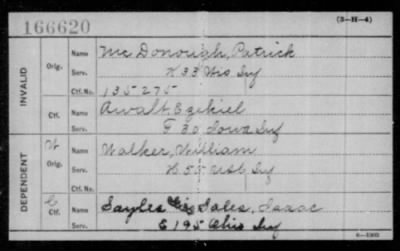 166620
(3-H-4)
INVALID
Orig.
Name McDonough, Patrick
Serv. K 33 Wis Inf
Ctf. No. 135275
Ctf.
Name Awalt, Ezekiel
Serv. F 30 Iowa Inf
DEPENDENT
W
Orig.
Name Walker, William
Serv. K 55 Inf
Ctf. No.
C
Ctf.
Name Sayles Sales, Isaac
Serv. C 195 Ohio Inf